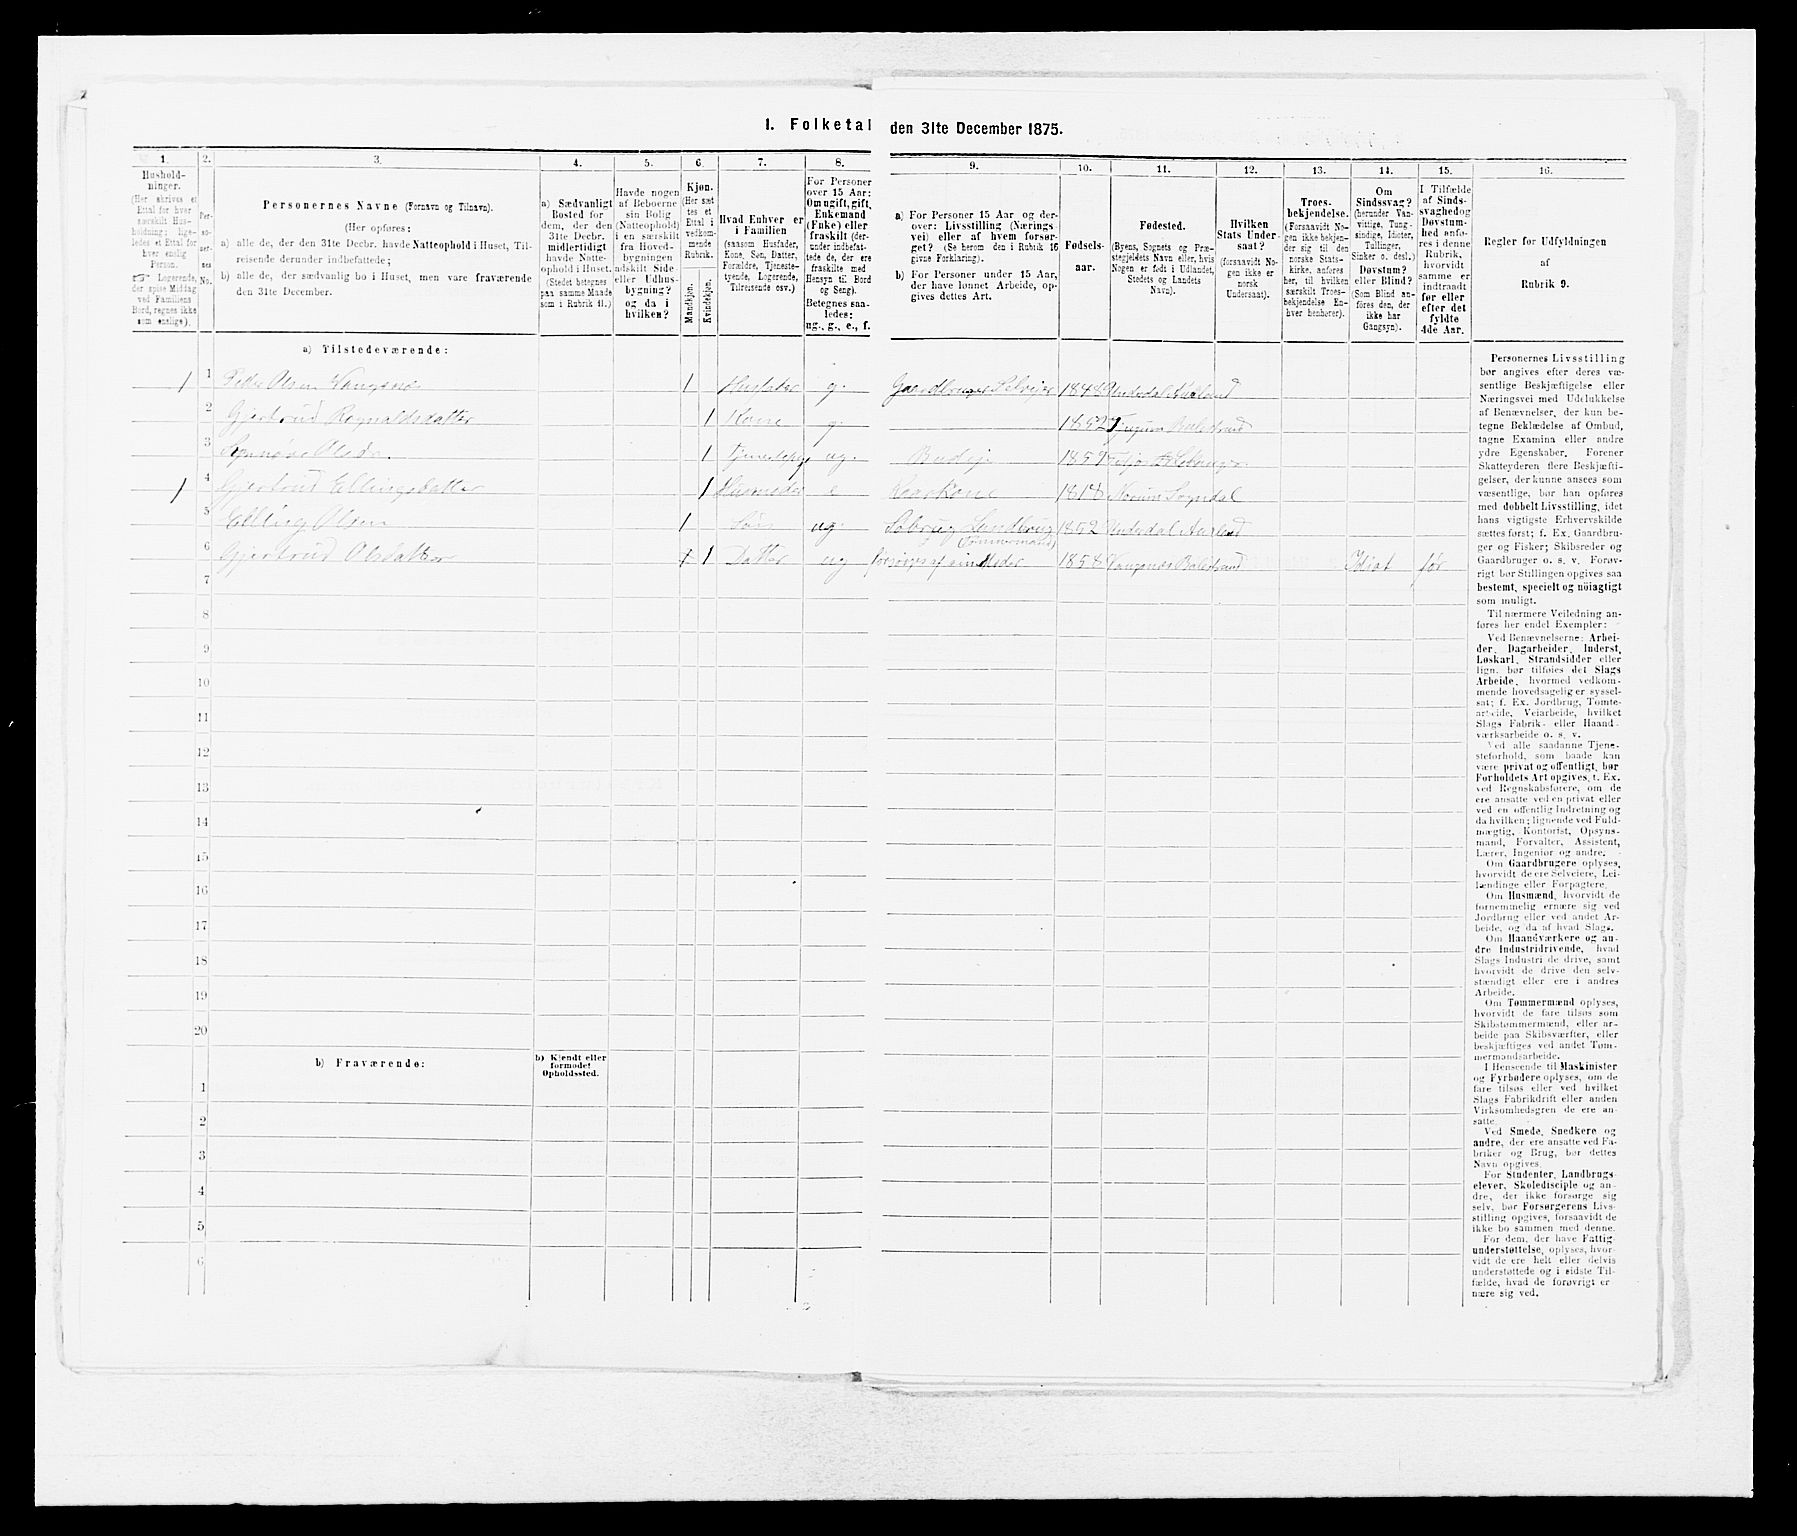 1. Folketal den 31te December 1875.
1.
Hushold-
ninger.
(Her skrives et
Ettal for hver
særskilt Hus-
holdning; lige-
ledes et Ettal for
hver enslig
Person.
☞ Logerende,
der spise Middag
ved Familiens
Bord, regnes ikke
som enslige).
2.
Per-
so-
ner-
nes
No.
3.
Personernes Navne (Fornavn og Tilnavn).
(Her opføres:
a) alle de, der den 31te Decbr. havde Natteophold i Huset, Til-
reisende derunder indbefattede;
b) alle de, der sædvanlig bo i Huset, men vare fraværende
den 31te December.
4.
a) Sædvanligt
Bosted for
dem, der den
31te Decbr.
midlertidigt
havde Natte-
ophold i Huset.
(Stedet betegnes
paa samme Maade
som i Rubrik 11.)
5.
Havde nogen
af Beboerne
sin Bolig
(Natteophold)
i en særskilt
fra Hoved-
bygningen
adskilt Side-
eller Udhus-
bygning?
og da i
hvilken?
6.
Kjøn.
(Her sæt-
tes et
Ettal i
vedkom-
mende
Rubrik.
Mandkjøn.
Kvindekjøn.
7.
Hvad Enhver er
i Familien
(saasom Husfader,
Kone, Søn, Datter,
Forældre, Tjeneste-
tyende, Logerende,
Tilreisende osv.)
8.
For Personer
over 15 Aar:
Om ugift, gift,
Enkemand
(Enke) eller
fraskilt (der-
under indbefat-
tede de, der ere
fraskilte med
Hensyn til Bord
og Seng).
Betegnes saa-
ledes:
ug., g., e., f.
9.
a) For Personer 15 Aar og der-
over: Livsstilling (Nærings-
vei) eller af hvem forsør-
get? (Se herom den i Rubrik 16
givne Forklaring).
b) For Personer under 15 Aar,
der have lønnet Arbeide, op-
gives dettes Art.
10.
Fødsels-
aar.
11.
Fødested.
(Byens, Sognets og Præ-
stegjeldets Navn eller, hvis
Nogen er født i Udlandet,
Stedets og Landets
Navn).
12.
Hvilken
Stats Under-
saat?
(forsaavidt No-
gen ikke er
norsk
Undersaat).
13.
Troes-
bekjendelse.
(Forsaavidt No-
gen ikke bekjen-
der sig til den
norske Stats-
kirke, anføres
her, til hvilken
særskilt Troes-
bekjendelse En-
hver henhører).
14.
Om
Sindssvag?
(herunder Van-
vittige, Tung-
sindige, Idioter,
Tullinger,
Sinker o. desl.)
Døvstum?
eller Blind?
(Som Blind an-
føres den, der
ikke har
Gangsyn).
15.
I Tilfælde
af Sinds-
svaghed og
Døvstum-
hed anfø-
res i denne
Rubrik,
hvorvidt
samme er
indtraadt
før eller
efter det
fyldte
4de Aar.
16.
Regler for Udfyldningen
af
Rubrik 9.
a) Tilstedeværende:
1 1 Peder Olsen Vangsnes 1 Husfader g. Gaardbruger Selveier 1848 Undredal Aurland
2 Gjertrud Ragnaldsdatter 1 Kone g. 1852 Tjugum Balestrand
3 Synnøve Olsdr. 1 Tjenestepige ug. Budeje 1859
1 4 Gjertrud Ellingsdatter 1 Husmoder e Kaarkone 1818 Norum Sogndal
5 Elling Olsen 1 Søn ug. Landbrug 1852 Undredal Aurland
(Tømmermand)
6 Gjertrud Olsdatter 1 1 Datter ug forsørges af sin Moder 1858 Vangsnes Balestrand Idiot før
7
8
9
10
11
12
13
14
15
16
17
18
19
20
b) Fraværende:
b) Kjendt eller
formodet
Opholdssted.
1
2
3
4
5
6
Personernes Livsstilling
bør angives efter deres væ-
sentlige Beskjæftigelse eller
Næringsvei med Udelukkelse
af Benævnelser, der kun be-
tegne Beklædelse af Ombud,
tagne Examina eller andre
ydre Egenskaber. Forener
Skatteyderen flere Beskjæfti-
gelser, der kunne ansees som
væsentlige, bør han opføres
med dobbelt Livsstilling, idet
hans vigtigste Erhvervskilde
sættes først; f. Ex. Gaardbru-
ger og Fisker; Skibsreder og
Gaardbruger o. s. v. Forøv-
rigt bør Stillingen opgives saa
bestemt, specielt og nøiagtigt
som muligt.
Til nærmere Veiledning an-
føres her endel Exempler:
Ved Benævnelserne: Arbei-
der, Dagarbeider, Inderst,
Løskarl, Strandsidder eller
lign. bør tilføies det Slags
Arbeide, hvormed vedkom-
mende hovedsagelig er syssel-
sat; f. Ex. Jordbrug, Tømte-
arbeide, Veiarbeide, hvilket
Slags Fabrik- eller Haand-
værksarbeide o. s. v.
Ved alle saadanne Tjene-
steforhold, som baade kan
være privat og offentligt, bør
Forholdets Art opgives, t. Ex.
ved Regnskabsførere, om de
ere ansatte ved en privat eller
ved en offentlig Indretning og
da hvilken; lignende ved Fuld-
mægtig, Kontorist, Opsyns-
mand, Forvalter, Assistent,
Lærer, Ingeniør og andre.
Om Gaardbrugere oplyses,
hvorvidt de ere Selveiere, Lei-
lændinge eller Forpagtere.
Om Husmænd, hvorvidt de
fornemmelig ernære sig ved
Jordbrug eller ved andet Ar-
beide, og da af hvad Slags.
Om Haandværkere og an-
dre Industridrivende, hvad
Slags Industri de drive, samt
hvorvidt de drive den selv-
stændigt eller ere i andres
Arbeide.
Om Tømmermænd oplyses,
hvorvidt de fare tilsøs som
Skibstømmermænd, eller ar-
beide paa Skibsværfter, eller
beskjæftiges ved andet Tøm-
mermandsarbeide.
I Henseende til Maskinister
og Fyrbødere oplyses, om de
fare tilsøs eller ved hvilket
Slags Fabrikdrift eller anden
Virksomhedsgren de ere an-
satte.
Ved Smede, Snedkere og
andre, der ere ansatte ved Fa-
briker og Brug, bør dettes
Navn opgives.
For Studenter, Landbrugs-
elever, Skoledisciple og an-
dre, der ikke forsørge sig
selv, bør Forsørgerens Livs-
stilling opgives, forsaavidt de
ikke bo sammen med denne.
For dem, der have Fattig-
understøttelse, oplyses, hvor-
vidt de ere helt eller delvis
understøttede og i sidste Til-
fælde, hvad de forøvrigt er
nære sig ved.